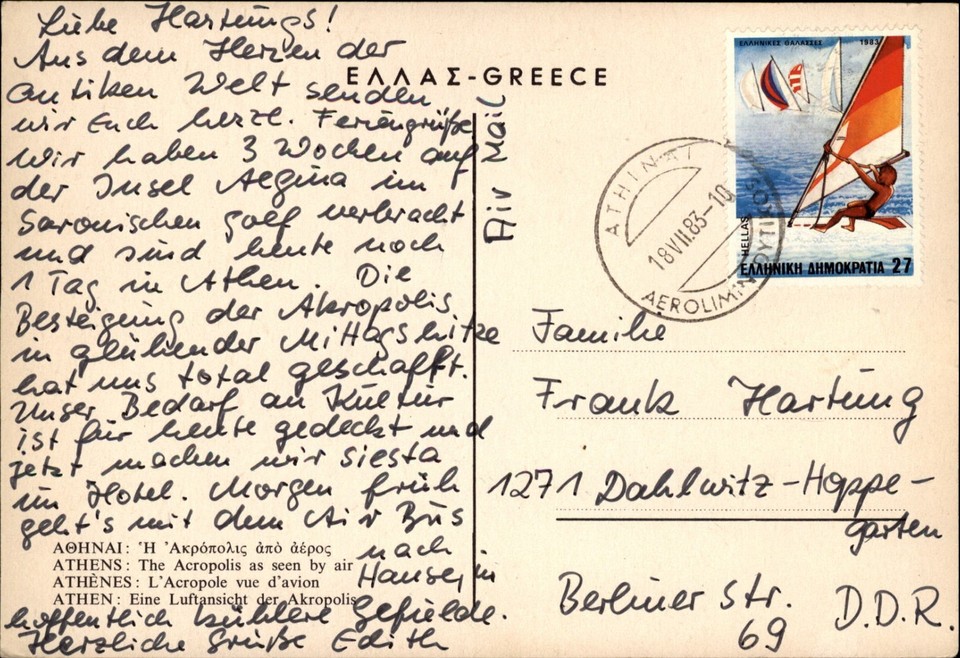 Liebe Hartungs!
Aus dem Herzen der
antiken Welt senden
wir Euch herzl. Feriengrüße
Wir haben 3 Wochen auf
der Insel Aegina im
Saronischen Golf verbracht
und sind heute noch
1 Tag in Athen. Die
Besteigung der Akropolis
in glühender Mittagshitze
hat uns total geschafft.
Unser Bedarf an Kultur
ist für heute gedeckt und
jetzt machen wir Siesta
im Hotel. Morgen früh
geht's mit dem Air Bus
nach
Hause, in
hoffentlich kühlere Gefielde.
Herzliche Grüße Edith
ΑΘΗΝΑΙ: Ἡ Ἀκρόπολις ἀπὸ ἀέρος
ATHENS: The Acropolis as seen by air
ATHÈNES: L'Acropole vue d'avion
ATHEN: Eine Luftansicht der Akropolis
ΕΛΛΑΣ-GREECE
Air Mail
ΕΛΛΗΝΙΚΕΣ ΘΑΛΑΣΣΕΣ 1983
HELLAS
ΕΛΛΗΝΙΚΗ ΔΗΜΟΚΡΑΤΙΑ 27
ATHINAI
18 VII.83-10
AEROLIMIN
Familie
Frank Hartung
1271 Dahlwitz-Hoppe-
garten
Berliner Str.
69
D.D.R.